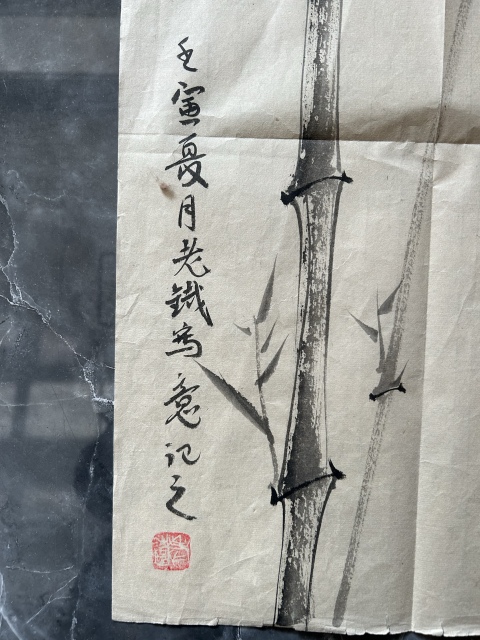 壬寅夏月老鐵寫意記之